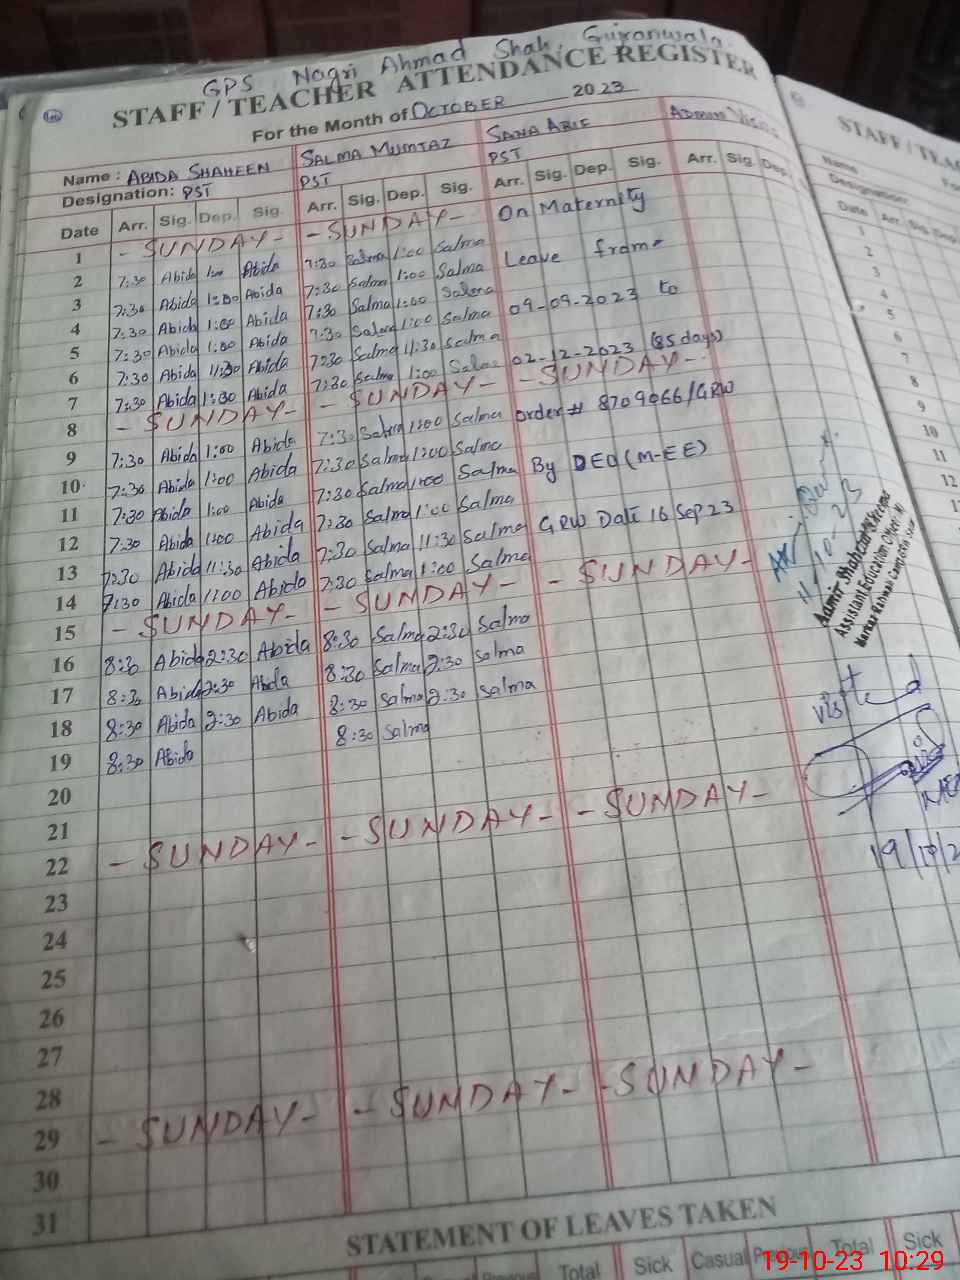 GPS Nagri Ahmad Shah, Gujranwala.
STAFF / TEACHER ATTENDANCE REGISTER
For the Month of OCTOBER 2023
Name : ABIDA SHAHEEN SALMA MUMTAZ SANA ARIF ADMIN Visits
Designation: PST PST PST
Date Arr. Sig. Dep. Sig. Arr. Sig. Dep. Sig. Arr. Sig. Dep. Sig. Arr. Sig Dep.
1 - SUNDAY - - SUNDAY - On Maternity
2 7:30 Abida 1:00 Abida 7:30 Salma 1:00 Salma
3 7:30 Abida 1:00 Abida 7:30 Salma 1:00 Salma Leave from
4 7:30 Abida 1:00 Abida 7:30 Salma 1:00 Salma
5 7:30 Abida 1:00 Abida 7:30 Salma 1:00 Salma 09-09-2023 to
6 7:30 Abida 11:30 Abida 7:30 Salma 11:30 Salma
7 7:30 Abida 1:00 Abida 7:30 Salma 1:00 Salma 02-12-2023 (85 days)
8 - SUNDAY - - SUNDAY - - SUNDAY -
9 7:30 Abida 1:00 Abida 7:30 Salma 1:00 Salma order # 8709066/GRW
10 7:30 Abida 1:00 Abida 7:30 Salma 1:00 Salma
11 7:30 Abida 1:00 Abida 7:30 Salma 1:00 Salma By DEO (M-EE)
12 7:30 Abida 1:00 Abida 7:30 Salma 1:00 Salma
13 7:30 Abida 11:30 Abida 7:30 Salma 11:30 Salma GRW Date 16 Sep 23
14 7:30 Abida 1:00 Abida 7:30 Salma 1:00 Salma
15 - SUNDAY - - SUNDAY - - SUNDAY -
16 8:30 Abida 2:30 Abida 8:30 Salma 2:30 Salma
17 8:30 Abida 2:30 Abida 8:30 Salma 2:30 Salma
18 8:30 Abida 2:30 Abida 8:30 Salma 2:30 Salma
19 8:30 Abida 8:30 Salma
20
21
22 - SUNDAY - - SUNDAY - - SUNDAY -
23
24
25
26
27
28
29 - SUNDAY - - SUNDAY - - SUNDAY -
30
31
Assistant Education Officer
Visited
STATEMENT OF LEAVES TAKEN
Total Sick Casual Previous Total Sick
STAFF / TEAC
Name
Designation:
Date Arr.
1
2
3
4
5
6
7
8
9
10
11
12
19-10-23 10:29